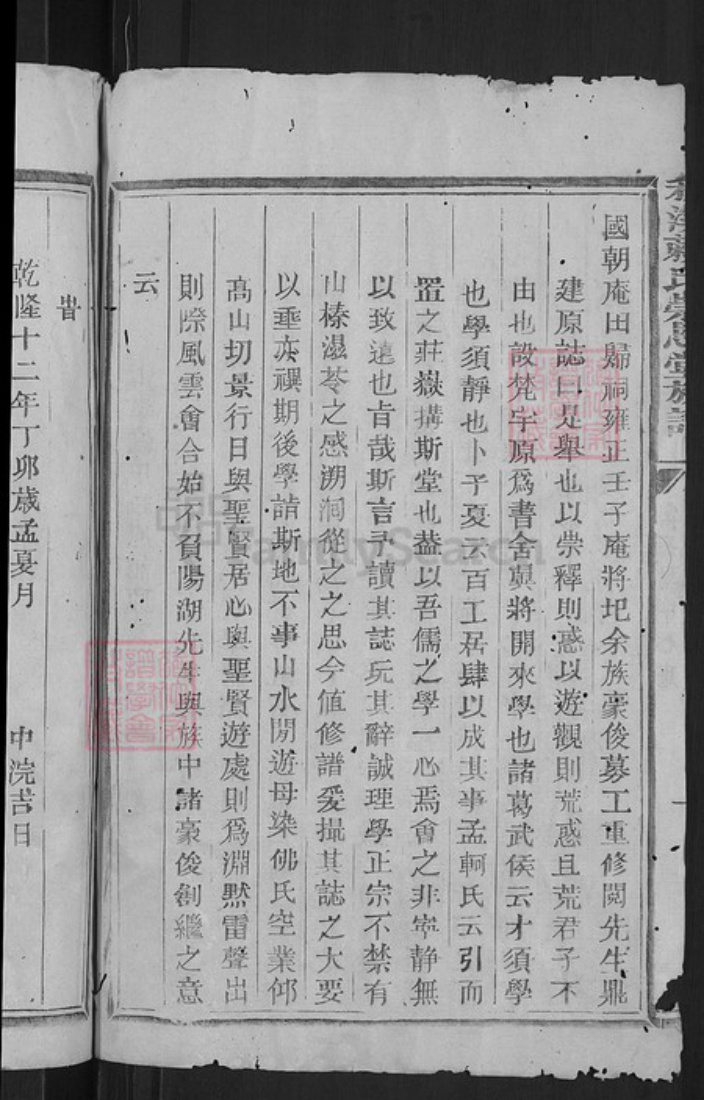 國朝庵田歸祠雍正壬子庵將圮余族豪俊募工重修閱先生鼎
建原誌曰是舉也以崇釋則惑以遊觀則荒惑且荒君子不
由也設梵宇原爲書舍與將開來學也諸葛武侯云才須學
也學須靜也卜子夏云百工居肆以成其事孟軻氏云引而
置之莊嶽搆斯堂也益以吾儒之學一心焉會之非寧静無
以致遠也旨哉斯言予讀其誌玩其辭誠理學正宗不禁有
山榛濕苓之感溯洄從之之思今值修譜爰撮其誌之大要
以垂亦禩期後學請斯地不事山水閒遊毋染佛氏空業仰
高山切景行日與聖賢居心與聖賢遊處則爲淵黙雷聲出
則際風雲會合始不負陽湖先生與族中諸豪俊創繼之意
云
旹
乾隆十二年丁卯歲孟夏月 中浣吉日
氏崇思堂族譜
FamilySearch